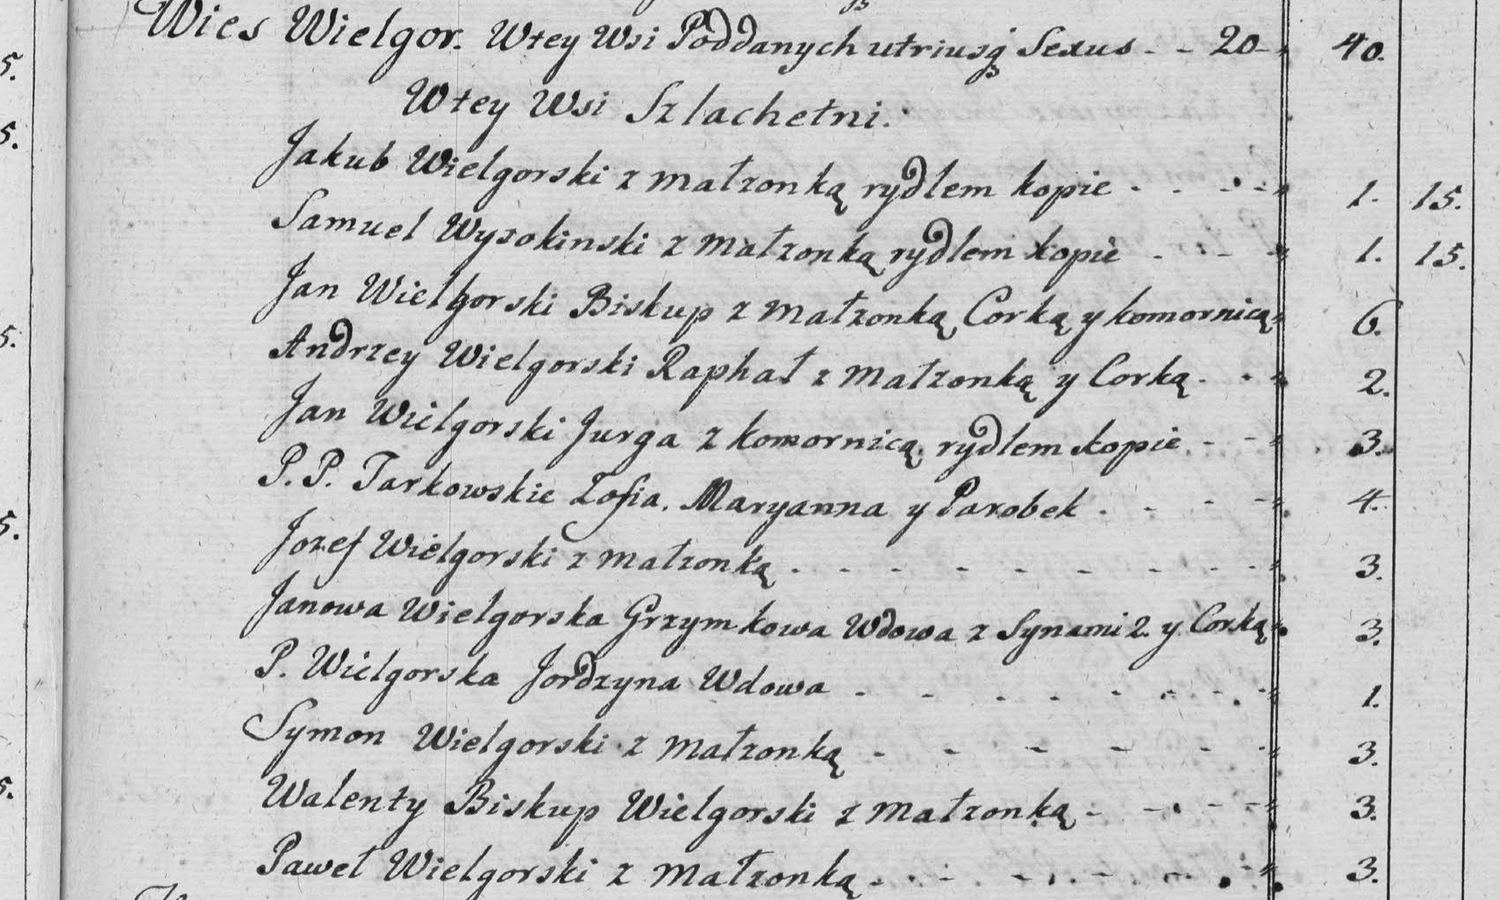 5.
5.
5.
5.
5.
Wies Wielgor. Wtey Wsi Poddanych utriusq Sexus - - 20 40.
Wtey Wsi Szlachetni.
Jakub Wielgorski z małzonką rydlem kopie - - - - 1. 15.
Samuel Wysokinski z małzonką rydlem kopie - - - 1. 15.
Jan Wielgorski Biskup z małzonką Corką y komornicą 6.
Andrzey Wielgorski Raphał z Małzonką y Corką - - 2.
Jan Wielgorski Jurga z komornicą rydlem kopie - - 3.
P. P. Tarkowskie Zofia, Maryanna y Parobek - - - - 4.
Jozef Wielgorski z małzonką - - - - - - - - 3.
Janowa Wielgorska Grzymkowa Wdowa z Synami 2. y Corką 3.
P. Wielgorska Jordzyna Wdowa - - - - - - - 1.
Symon Wielgorski z Małzonką - - - - - - 3.
Walenty Biskup Wielgorski z Małzonką - - - - 3.
Paweł Wielgorski z Małzonką - - - - - - 3.